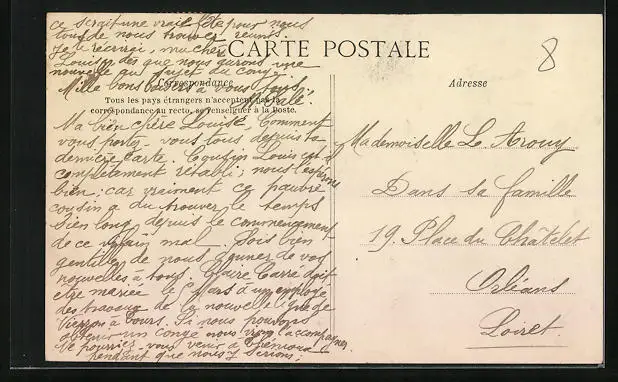 ce serait une vraie fête pour nous
tous de nous trouver réunis.
Je te récrirai, ma chère
Louise, dès que nous aurons une
nouvelle au sujet du congé.
Mille bons baisers à vous tous.
CARTE POSTALE
8
Correspondance
Tous les pays étrangers n'acceptent pas la
correspondance au recto, se renseigner à la Poste.
Ma bien chère Louise, Comment
vous portez-vous tous depuis ta
dernière carte. Cousin Louis est-il
complètement rétabli; nous l'espérons
bien; car vraiment ce pauvre
cousin a du trouver le temps
bien long, depuis le commencement
de ce vilain mal. Sois bien
gentille de nous donner de vos
nouvelles à tous. Claire Carré doit
être mariée le Mars à un employé
des travaux de la nouvelle ligne de
Vierzon à Tours. Si nous pouvons
obtenir un congé nous irons
Ne pourriez-vous venir à
pendant que nous y serions;
Adresse
Mademoiselle Le Arouy
Dans sa famille
19, Place du Châtelet
Orléans
Loiret.